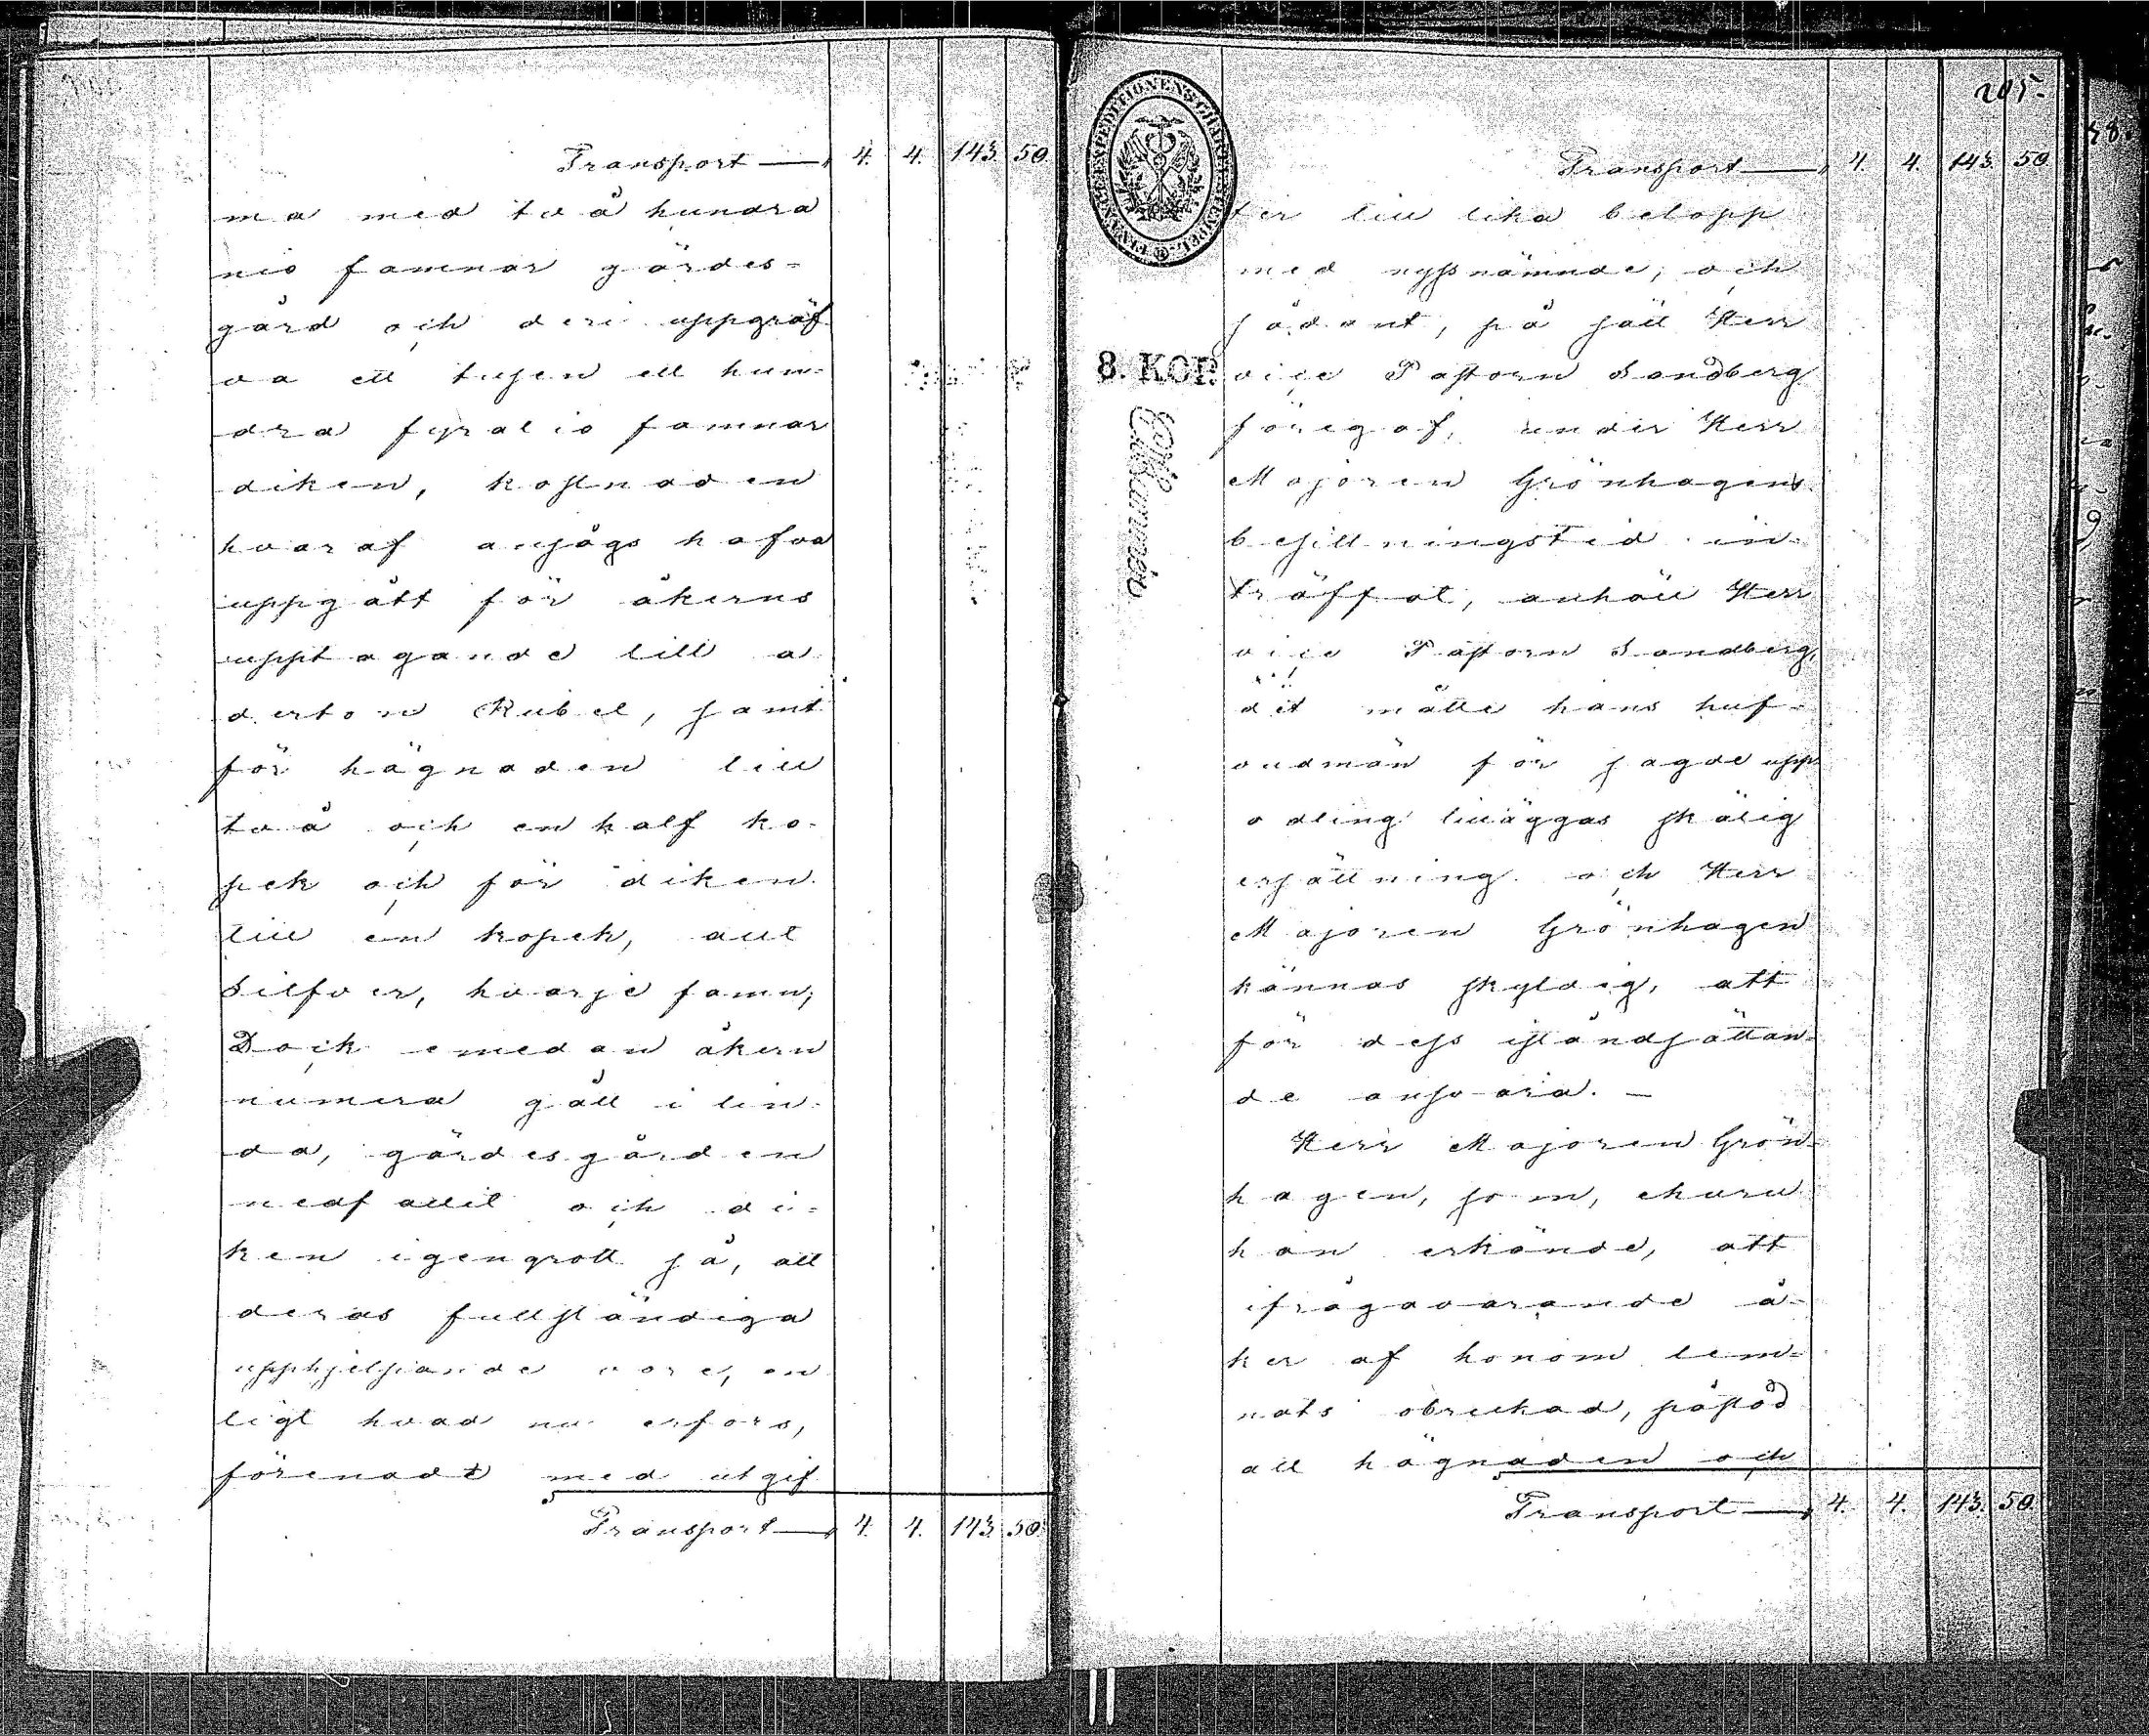 Transport — 4. 4. 143. 50.
ma med två hundra
nio famnar gärdes-
gård och deri uppgräf
va ett tusen ett hun-
dra fyratio famnar
diken, kostnaden
hvaraf ansågs hafva
uppgått för åkerns
upptagande till a
derton Rubel, samt
för hägnaden till
två och en half ko-
pek och för diken
till en kopek, allt
Silfver, hvarje famn;
Dock emedan åkern
numera gått i lin-
da, gärdesgården
nedfallit och di-
ken igengrott så, att
deras fullständiga
upphjelpande vore, en
ligt hvad nu erfors,
förenadt med utgif
Transport — 4. 4. 143. 50.
205.
Transport — 4. 4. 143. 50.
FINANCE-EXPEDITIONENS CHARTÆ STEMPEL
8. KOP.
ter till lika belopp
med nyssnämnde; och
sådant, på sätt Herr
vice Pastorn Sandberg
föregaf, under Herr
Majoren Grönhagens
besittningstid in-
träffat, anhöll Herr
vice Pastorn Sandberg,
det måtte hans huf-
vudmän för sagde upp
odling tilläggas skälig
ersättning och Herr
Majoren Grönhagen
kännas skyldig, att
för dess iståndsättan-
de ansvara. —
Herr Majoren Grön-
hagen, som, ehuru
han erkände, att
ifrågavarande å-
ker af honom lem-
nats obrukad, påstod
att hägnaden och
Transport — 4. 4. 143. 50.